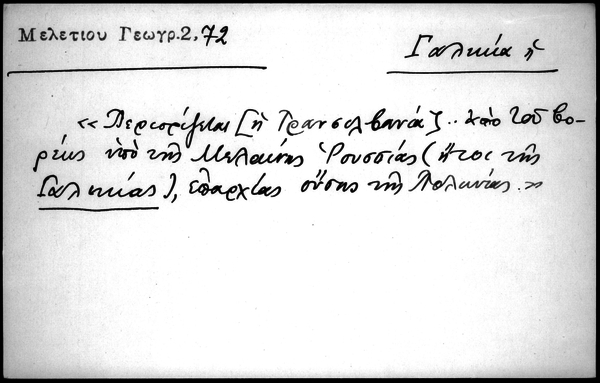 Μελετίου Γεωγρ. 2, 72
Γαλικία ἡ
« Περιορίζεται [ἡ Τρανσιλβανία].. ἀπὸ τοῦ βο-
ρέως ὑπὸ τῆς Μελαίνης Ῥουσσίας (ἤτοι τῆς
Γαλικίας), ἐπαρχίας οὔσης τῆς Πολωνίας.»